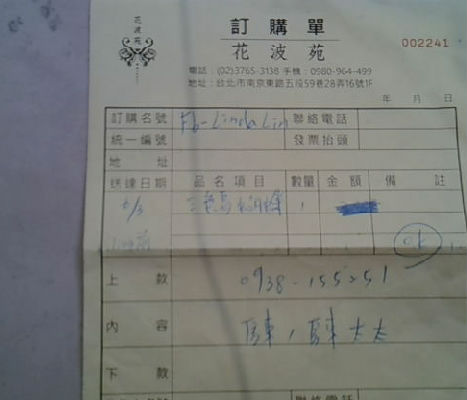 花波苑
訂購單
花波苑
002241
電話：(02)3765-3138 手機：0980-964-499
地址：台北市南京東路五段59巷28弄16號1F
年 月 日
訂購名號 FB-Linda Lin 聯絡電話
統一編號 發票抬頭
地 址
送達日期 品名項目 數量 金額 備 註
6/3 1
OK
上 款 0938-155251
內 容 太太
下 款
聯絡電話